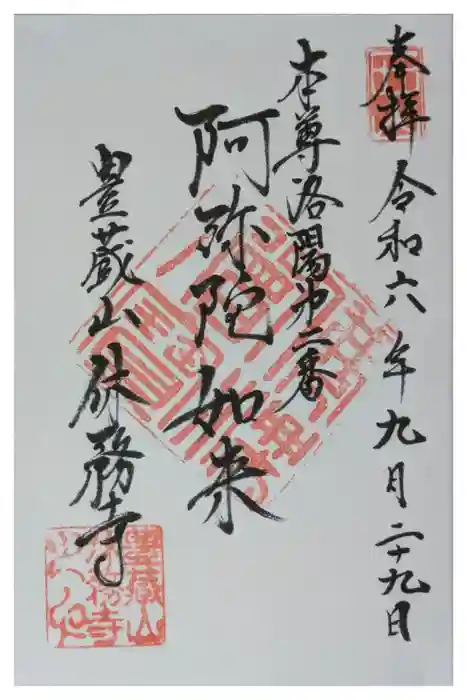 奉拝 令和六年九月二十九日
本尊洛陽第二番
阿弥陀如来
豊蔵山 務寺
豊蔵山
務寺